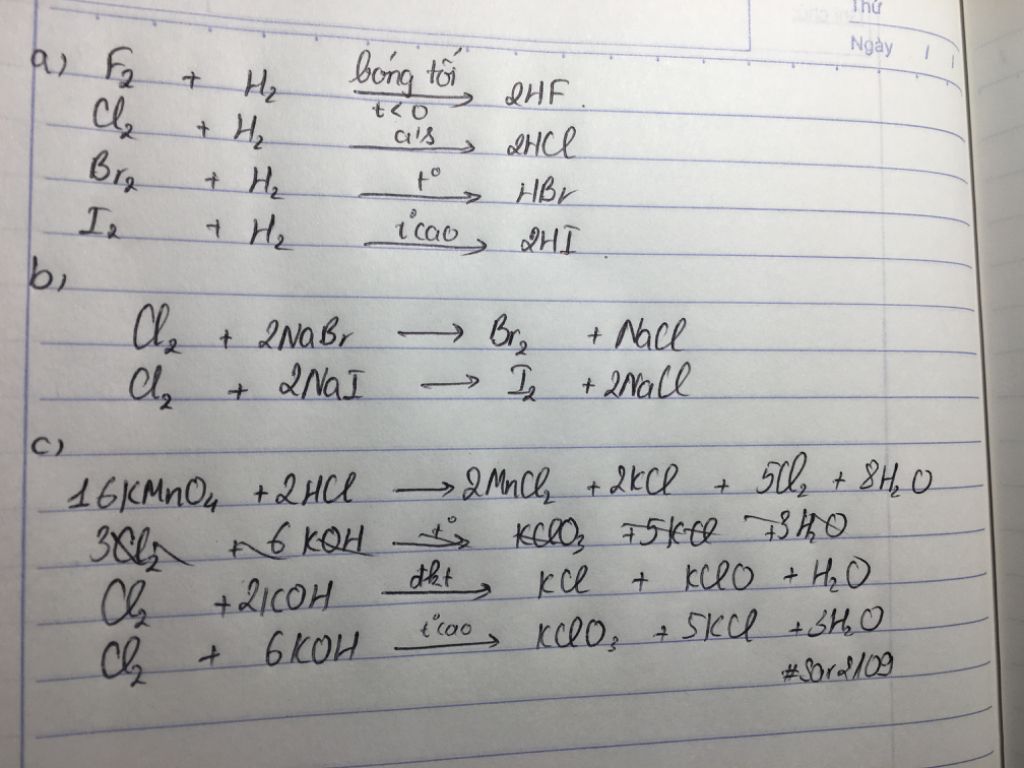 Thứ
Ngày / /
a) F₂ + H₂ bóng tối t<0 → 2HF.
Cl₂ + H₂ a's → 2HCl
Br₂ + H₂ t° → HBr
I₂ + H₂ t°cao → 2HI.
b)
Cl₂ + 2NaBr → Br₂ + NaCl
Cl₂ + 2NaI → I₂ + 2NaCl
c)
16KMnO₄ + 2HCl → 2MnCl₂ + 2KCl + 5Cl₂ + 8H₂O
3Cl₂ + 6KOH t° → KClO₃ + 5KCl + 3H₂O
Cl₂ + 2KOH đkt → KCl + KClO + H₂O
Cl₂ + 6KOH t°cao → KClO₃ + 5KCl + 3H₂O